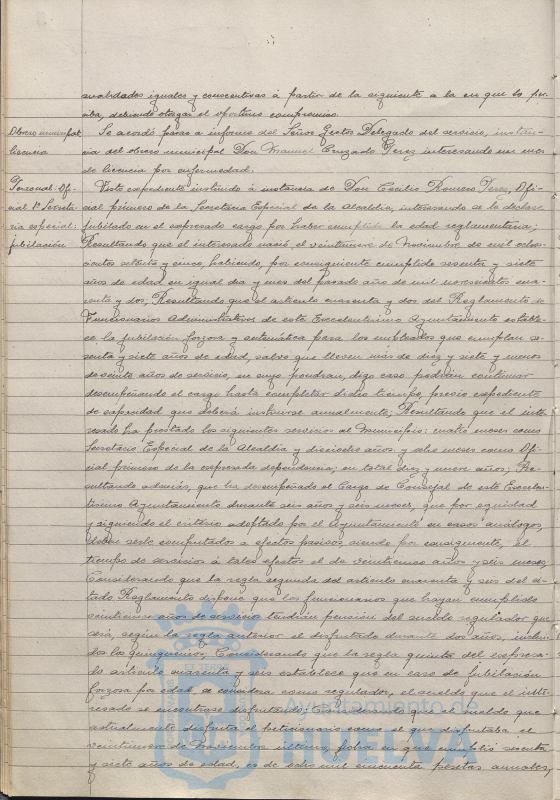 anualidades iguales y consecutivas á partir de la siguiente a la en que lo per-
ciba, debiendo otorgar el oportuno compromiso.
Obrero municipal: licencia
Se acordó pasar a informe del Señor Gestor Delegado del servicio, instan-
cia del obrero municipal Don Manuel Cruzado Pérez interesando un mes
de licencia por enfermedad.
Personal: Ofi-
cial 1º Secreta-
ría especial:
jubilación
Visto expediente instruido á instancia de Don Cecilio Romero Pérez, Ofi-
cial primero de la Secretaría Especial de la Alcaldía, interesando se le declare
jubilado en el expresado cargo por haber cumplido la edad reglamentaria;
Resultando que el interesado nació el veintinueve de Noviembre de mil ocho-
cientos setenta y cinco, habiendo, por consiguiente cumplido sesenta y siete
años de edad en igual dia y mes del pasado año de mil novecientos cua-
renta y dos; Resultando que el artículo cuarenta y dos del Reglamento de
Funcionarios Administrativos de este Excelentísimo Ayuntamiento estable-
ce la jubilación forzosa y automática para los empleados que cumplan se-
senta y siete años de edad, salvo que lleven más de diez y siete y menos
de veinte años de servicio, en cuyo pondran, digo caso podrán continuar
desempeñando el cargo hasta completar dicho tiempo, previo expediente
de capacidad que deberá instruirse anualmente; Resultando que el inte-
resado ha prestado los siguientes servicios al Municipio: cuatro meses como
Secretario Especial de la Alcaldía y dieciocho años y ocho meses como Ofi-
cial primero de la expresada dependencia; en total diez y nueve años; Re-
sultando además, que ha desempeñado el Cargo de Concejal de este Excelen-
tísimo Ayuntamiento durante seis años y seis meses, que por equidad
y siguiendo el criterio adoptado por el Ayuntamiento en casos análogos,
deben serle computados a efectos pasivos, siendo por consiguiente, el
tiempo de servicios á tales efectos el de veinticinco años y seis meses;
Considerando que la regla segunda del artículo cuarenta y seis del ci-
tado Reglamento dispone que los funcionarios que hayan cumplido
veinticinco años de servicio tendrán pensión del sueldo regulador que
será, según la regla anterior el disfrutado durante dos años, inclui-
dos los quinquenios; Considerando que la regla quinta del expresa-
do artículo cuarenta y seis establece que en caso de jubilación
forzosa por edad, se considera como regulador, el sueldo que el inte-
resado se encontrase disfrutando; Considerando que el sueldo que
actualmente disfruta el peticionario como el que disfrutaba el
veintinueve de Noviembre último, fecha en que cumplió sesenta
y siete años de edad, es de ocho mil cincuenta pesetas anuales;
EL TERRE
Ayuntamiento de
HUELVA